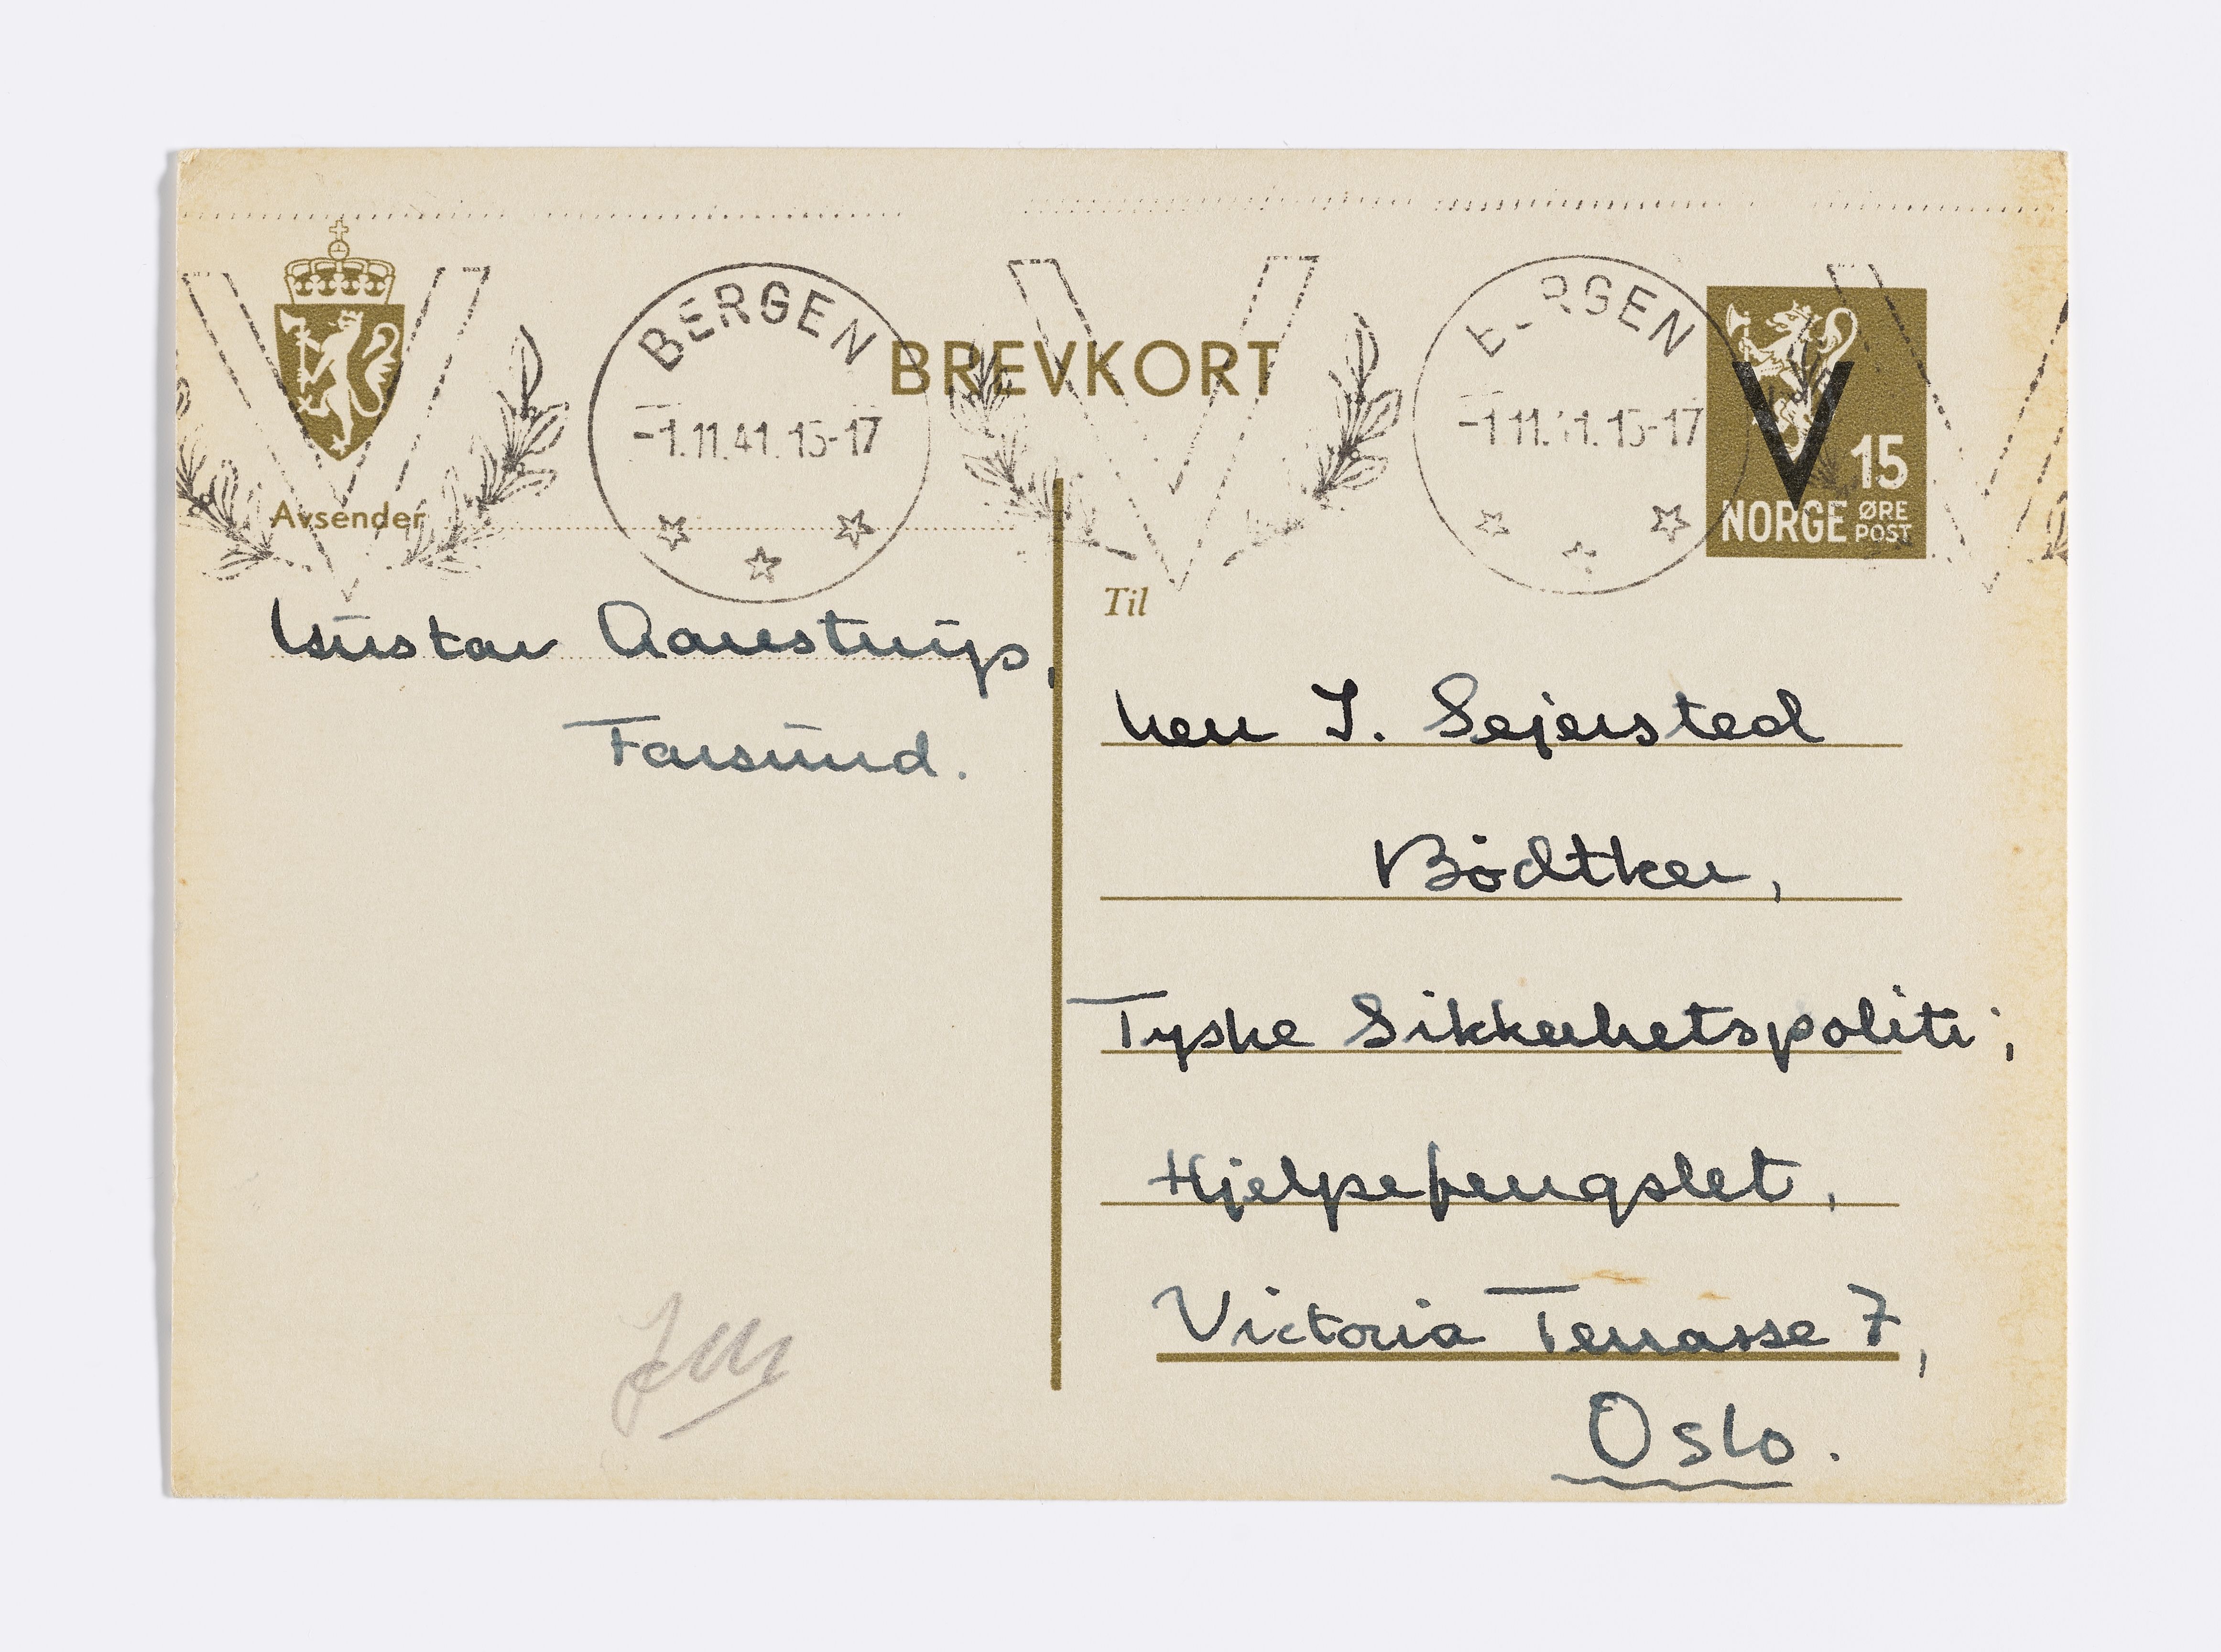 BERGEN
-1.11.41.15-17
BREVKORT
BERGEN
-1.11.41.15-17
V
15
NORGE ØRE
POST
Avsender
Gustav Aarestrup,
Farsund.
Til
Herr J. Sejersted
Bødtker,
Tyske Sikkerhetspoliti,
Hjelpefengslet,
Victoria Terrasse 7,
Oslo.